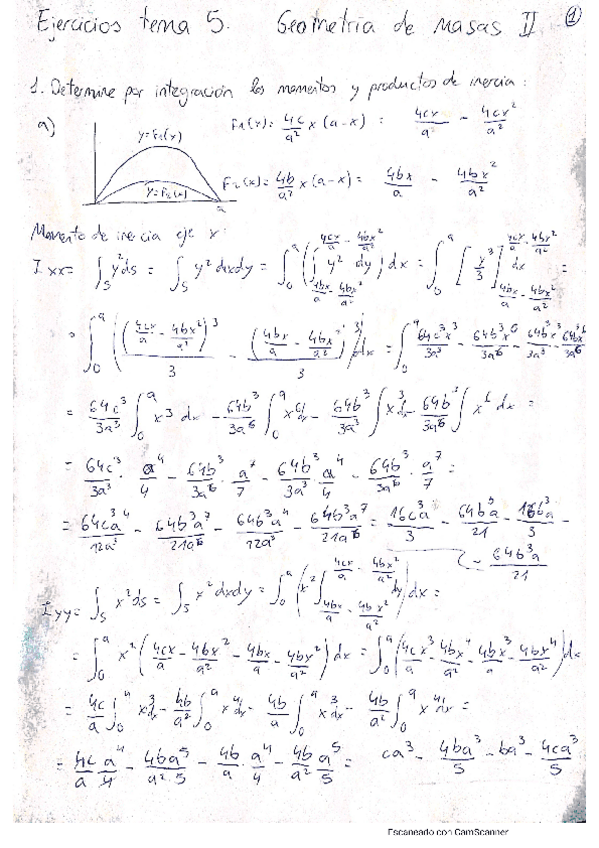 Ejercicios tema 5. Geometría de Masas II ①
1. Determine por integración los momentos y productos de inercia:
a) y=F₁(x) y=F₂(x) a
F₁(x) = 4c/a² x (a-x) = 4cx/a - 4cx²/a²
F₂(x) = 4b/a² x (a-x) = 4bx/a - 4bx²/a²
Momento de inercia eje x:
Ixx = ∫_S y² ds = ∫_S y² dxdy = ∫₀^a (∫_{4bx/a - 4bx²/a²}^{4cx/a - 4bx²/a²} y² dy) dx = ∫₀^a [y³/3]_{4bx/a - 4bx²/a²}^{4cx/a - 4bx²/a²} dx =
= ∫₀^a ((4cx/a - 4bx²/a²)³/3 - (4bx/a - 4bx²/a²)³/3) dx = ∫₀^a 64c³x³/3a³ - 64b³x⁶/3a⁶ - 64b³x³/3a³ - 64b³x⁶/3a⁶
= 64c³/3a³ ∫₀^a x³ dx - 64b³/3a⁶ ∫₀^a x⁶ dx - 64b³/3a³ ∫ x³ dx - 64b³/3a⁶ ∫ x⁶ dx =
= 64c³/3a³ · a⁴/4 - 64b³/3a⁶ · a⁷/7 - 64b³/3a³ · a⁴/4 - 64b³/3a⁶ · a⁷/7 =
= 64c³a⁴/12a³ - 64b³a⁷/21a⁶ - 64b³a⁴/12a³ - 64b³a⁷/21a⁶ = 16c³a/3 - 64b³a/21 - 16b³a/3 -
- 64b³a/21
Iyy = ∫_S x² ds = ∫_S x² dxdy = ∫₀^a (x² ∫_{4bx/a - 4bx²/a²}^{4cx/a - 4bx²/a²} dy) dx =
= ∫₀^a x² (4cx/a - 4bx²/a² - 4bx/a - 4bx²/a²) dx = ∫₀^a (4cx³/a - 4bx⁴/a² - 4bx³/a - 4bx⁴/a²) dx
= 4c/a ∫₀^a x³ dx - 4b/a² ∫₀^a x⁴ dx - 4b/a ∫₀^a x³ dx - 4b/a² ∫₀^a x⁴ dx =
= 4c/a a⁴/4 - 4ba⁵/a²·5 - 4b/a · a⁴/4 - 4b/a² a⁵/5 = ca³ - 4ba³/5 - ba³ - 4ca³/5
Escaneado con CamScanner